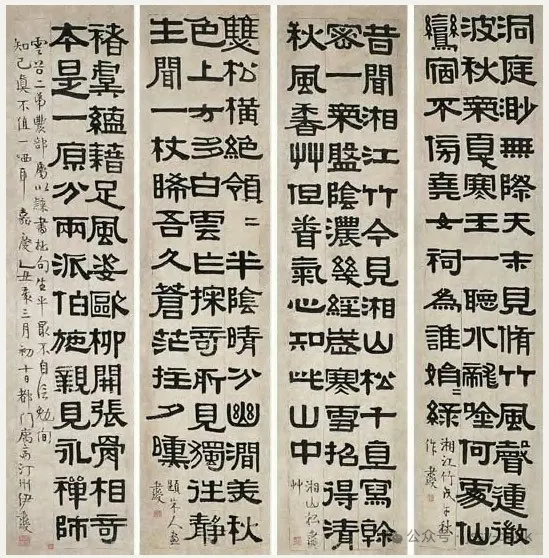 洞庭渺無際天末見脩竹風聲連澂
波秋氣戛寒玉一聽水龍唫何處仙
鸞宿不傍堯女祠為誰娟〻綠
湘江竹
作
昔聞湘江竹今見湘山松千直寫幹
密一氣盤陰濃幾經歲寒雪招得清
秋風香艸但眷氣心知此山中
湘山松
艸
雙松橫絕領〻半陰晴分幽澗美秋
色上方多白雲亡探奇所見獨往靜
生聞一杖晞吾久蒼茫拄夕曛
題宋人畫
褚虞蘊藉足風姿歐柳開張骨相奇
本是一原分兩派伯施親見永禪師
雲谷二弟農部屬以隸書拙句生平最不自信勉徇
知己真不值一哂耳 嘉慶乙丑歲三月初十日都門廣寓汀州伊秉綬
公众号